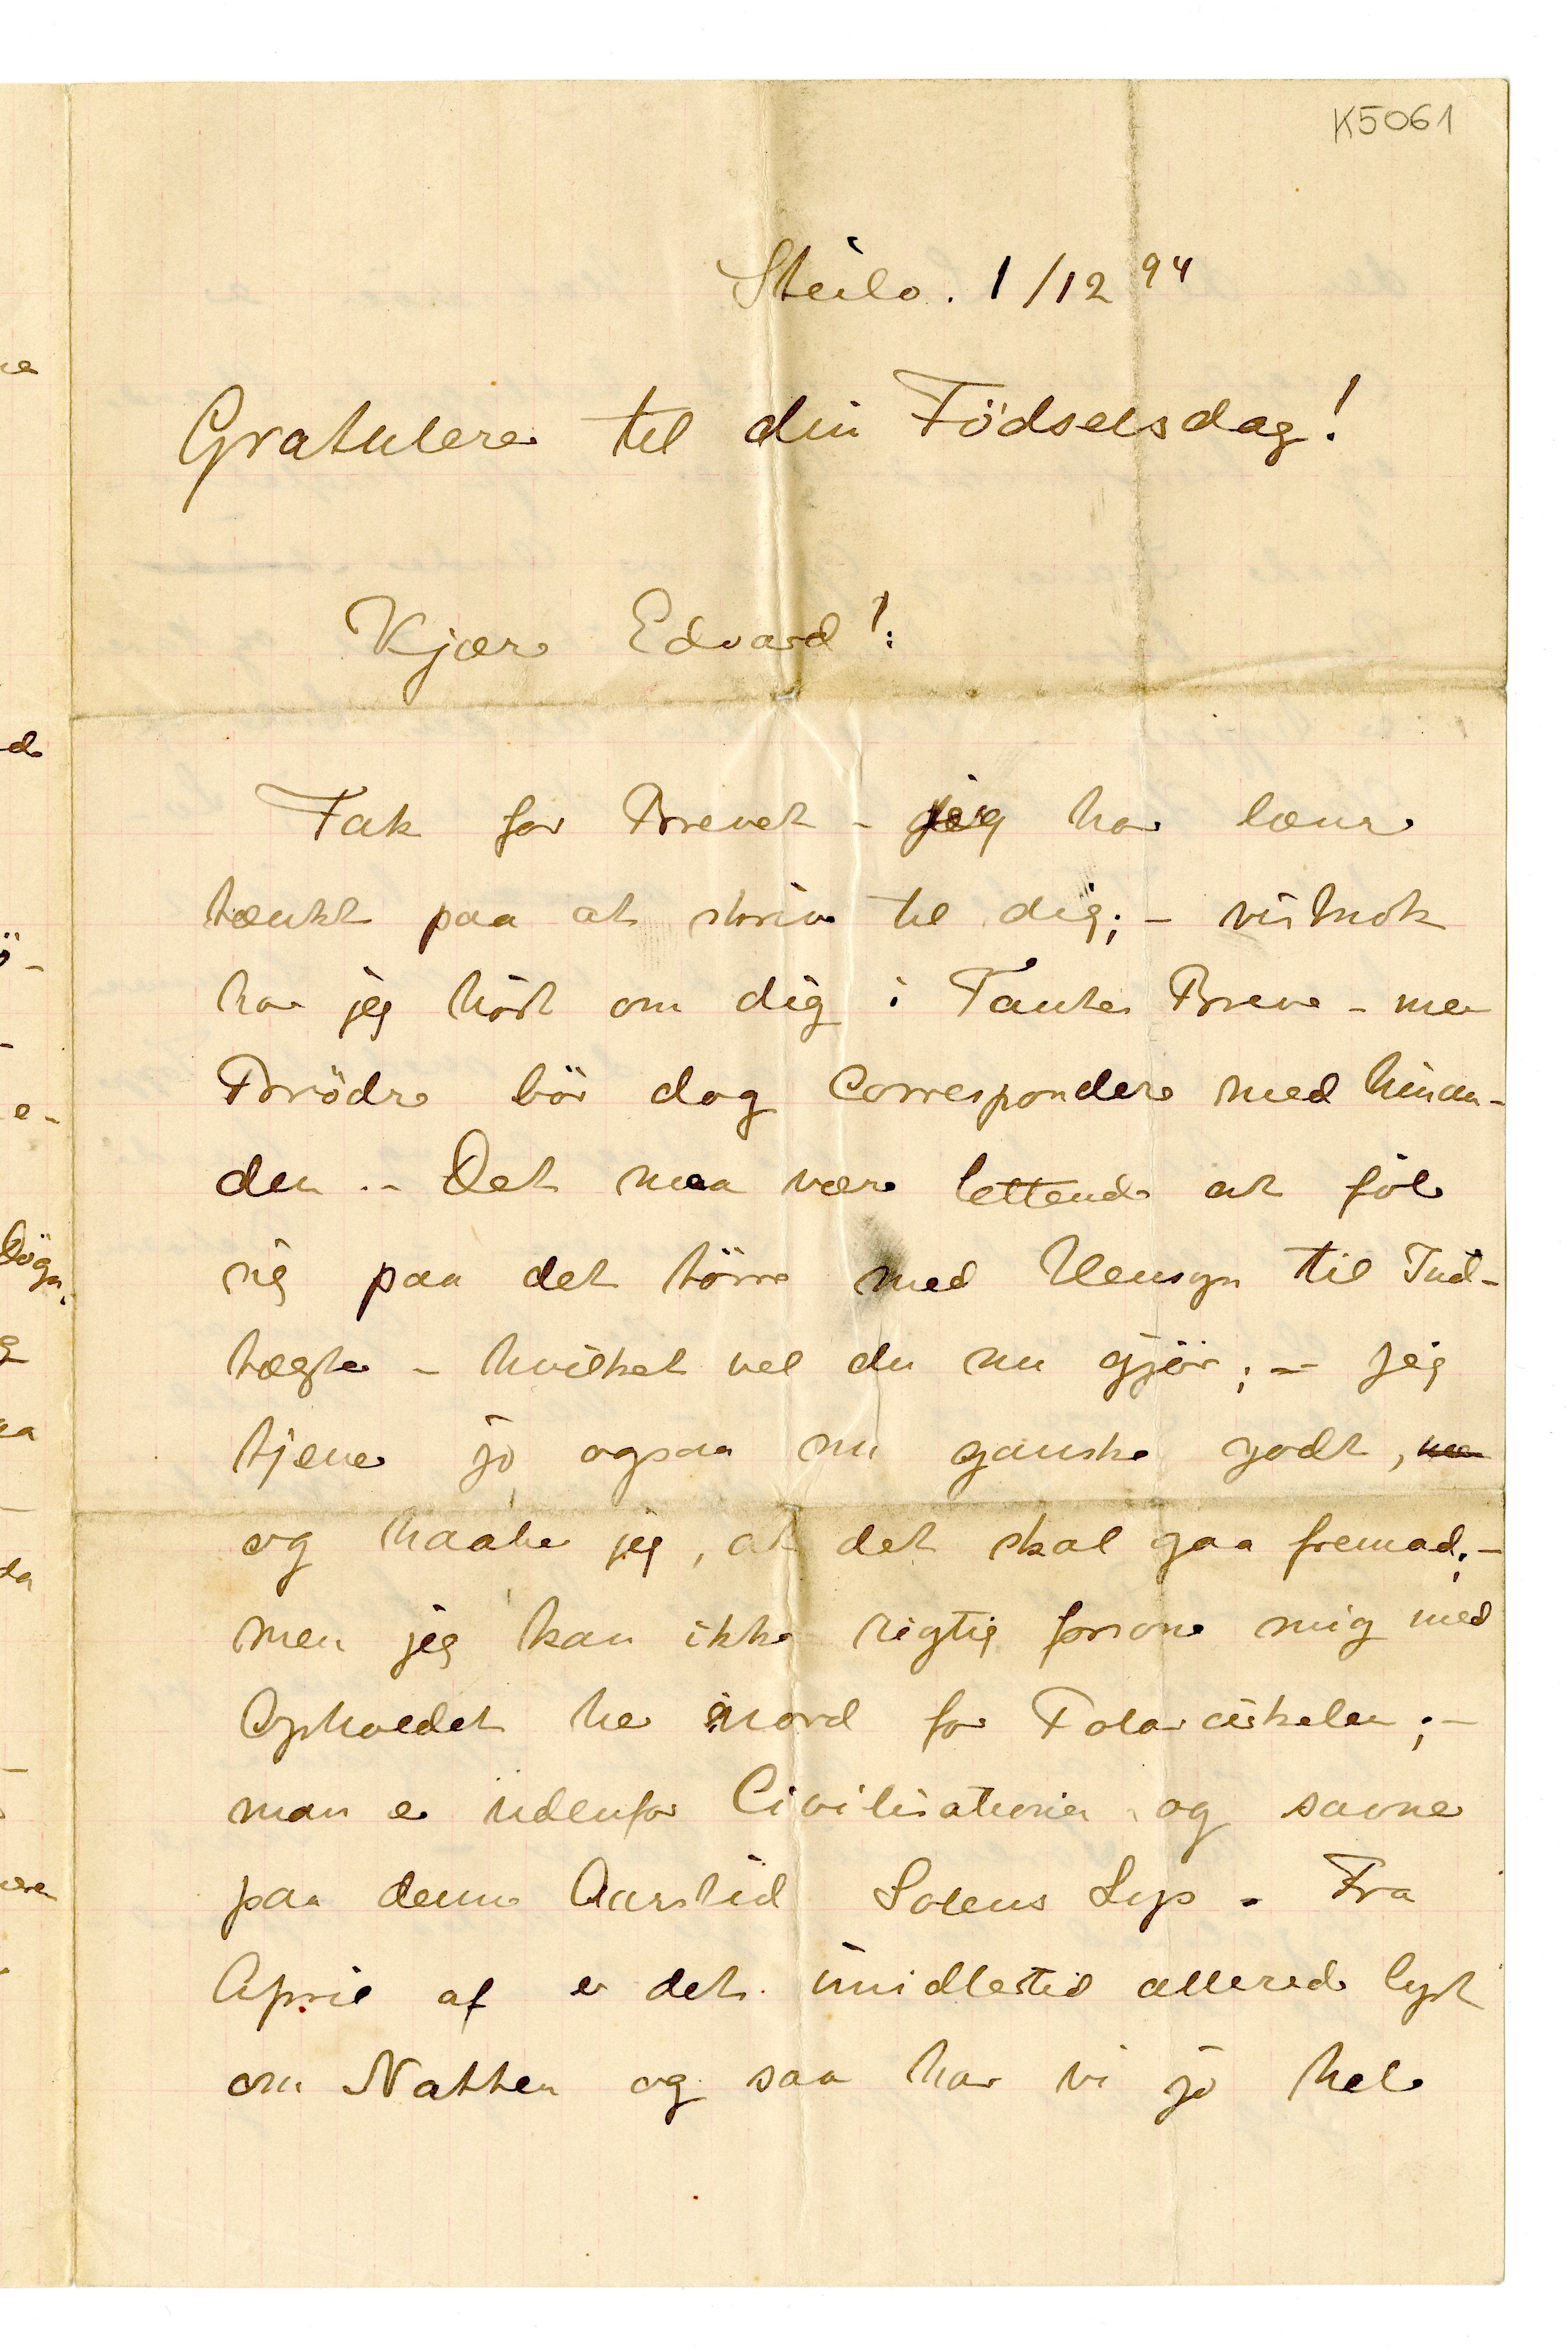 K5061
Steilo. 1/12 94
Gratulerer til din Födselsdag!
Kjære Edvard!:
Tak for Brevet – jeg har længe
tænkt paa at skrive til dig; – vistnok
har jeg hört om dig i Tantes Breve – men
Brödre bör dog correspondere med hinan-
den. – Det maa være lettende at föle
sig paa det törre med Hensyn til Ind-
tægter – hvilket vel du nu gjör; – jeg
tjener jo ogsaa nu ganske godt,
og haaber jeg, at det skal gaa fremad; –
men jeg kan ikke rigtig forsone mig med
Opholdet her nord for Polarcirkelen; –
man er udenfor Civilisationen og savner
paa denne Aarstid Solens Lys. Fra
April af er det imidlertid allerede lyst
om Natten og saa har vi jo hele